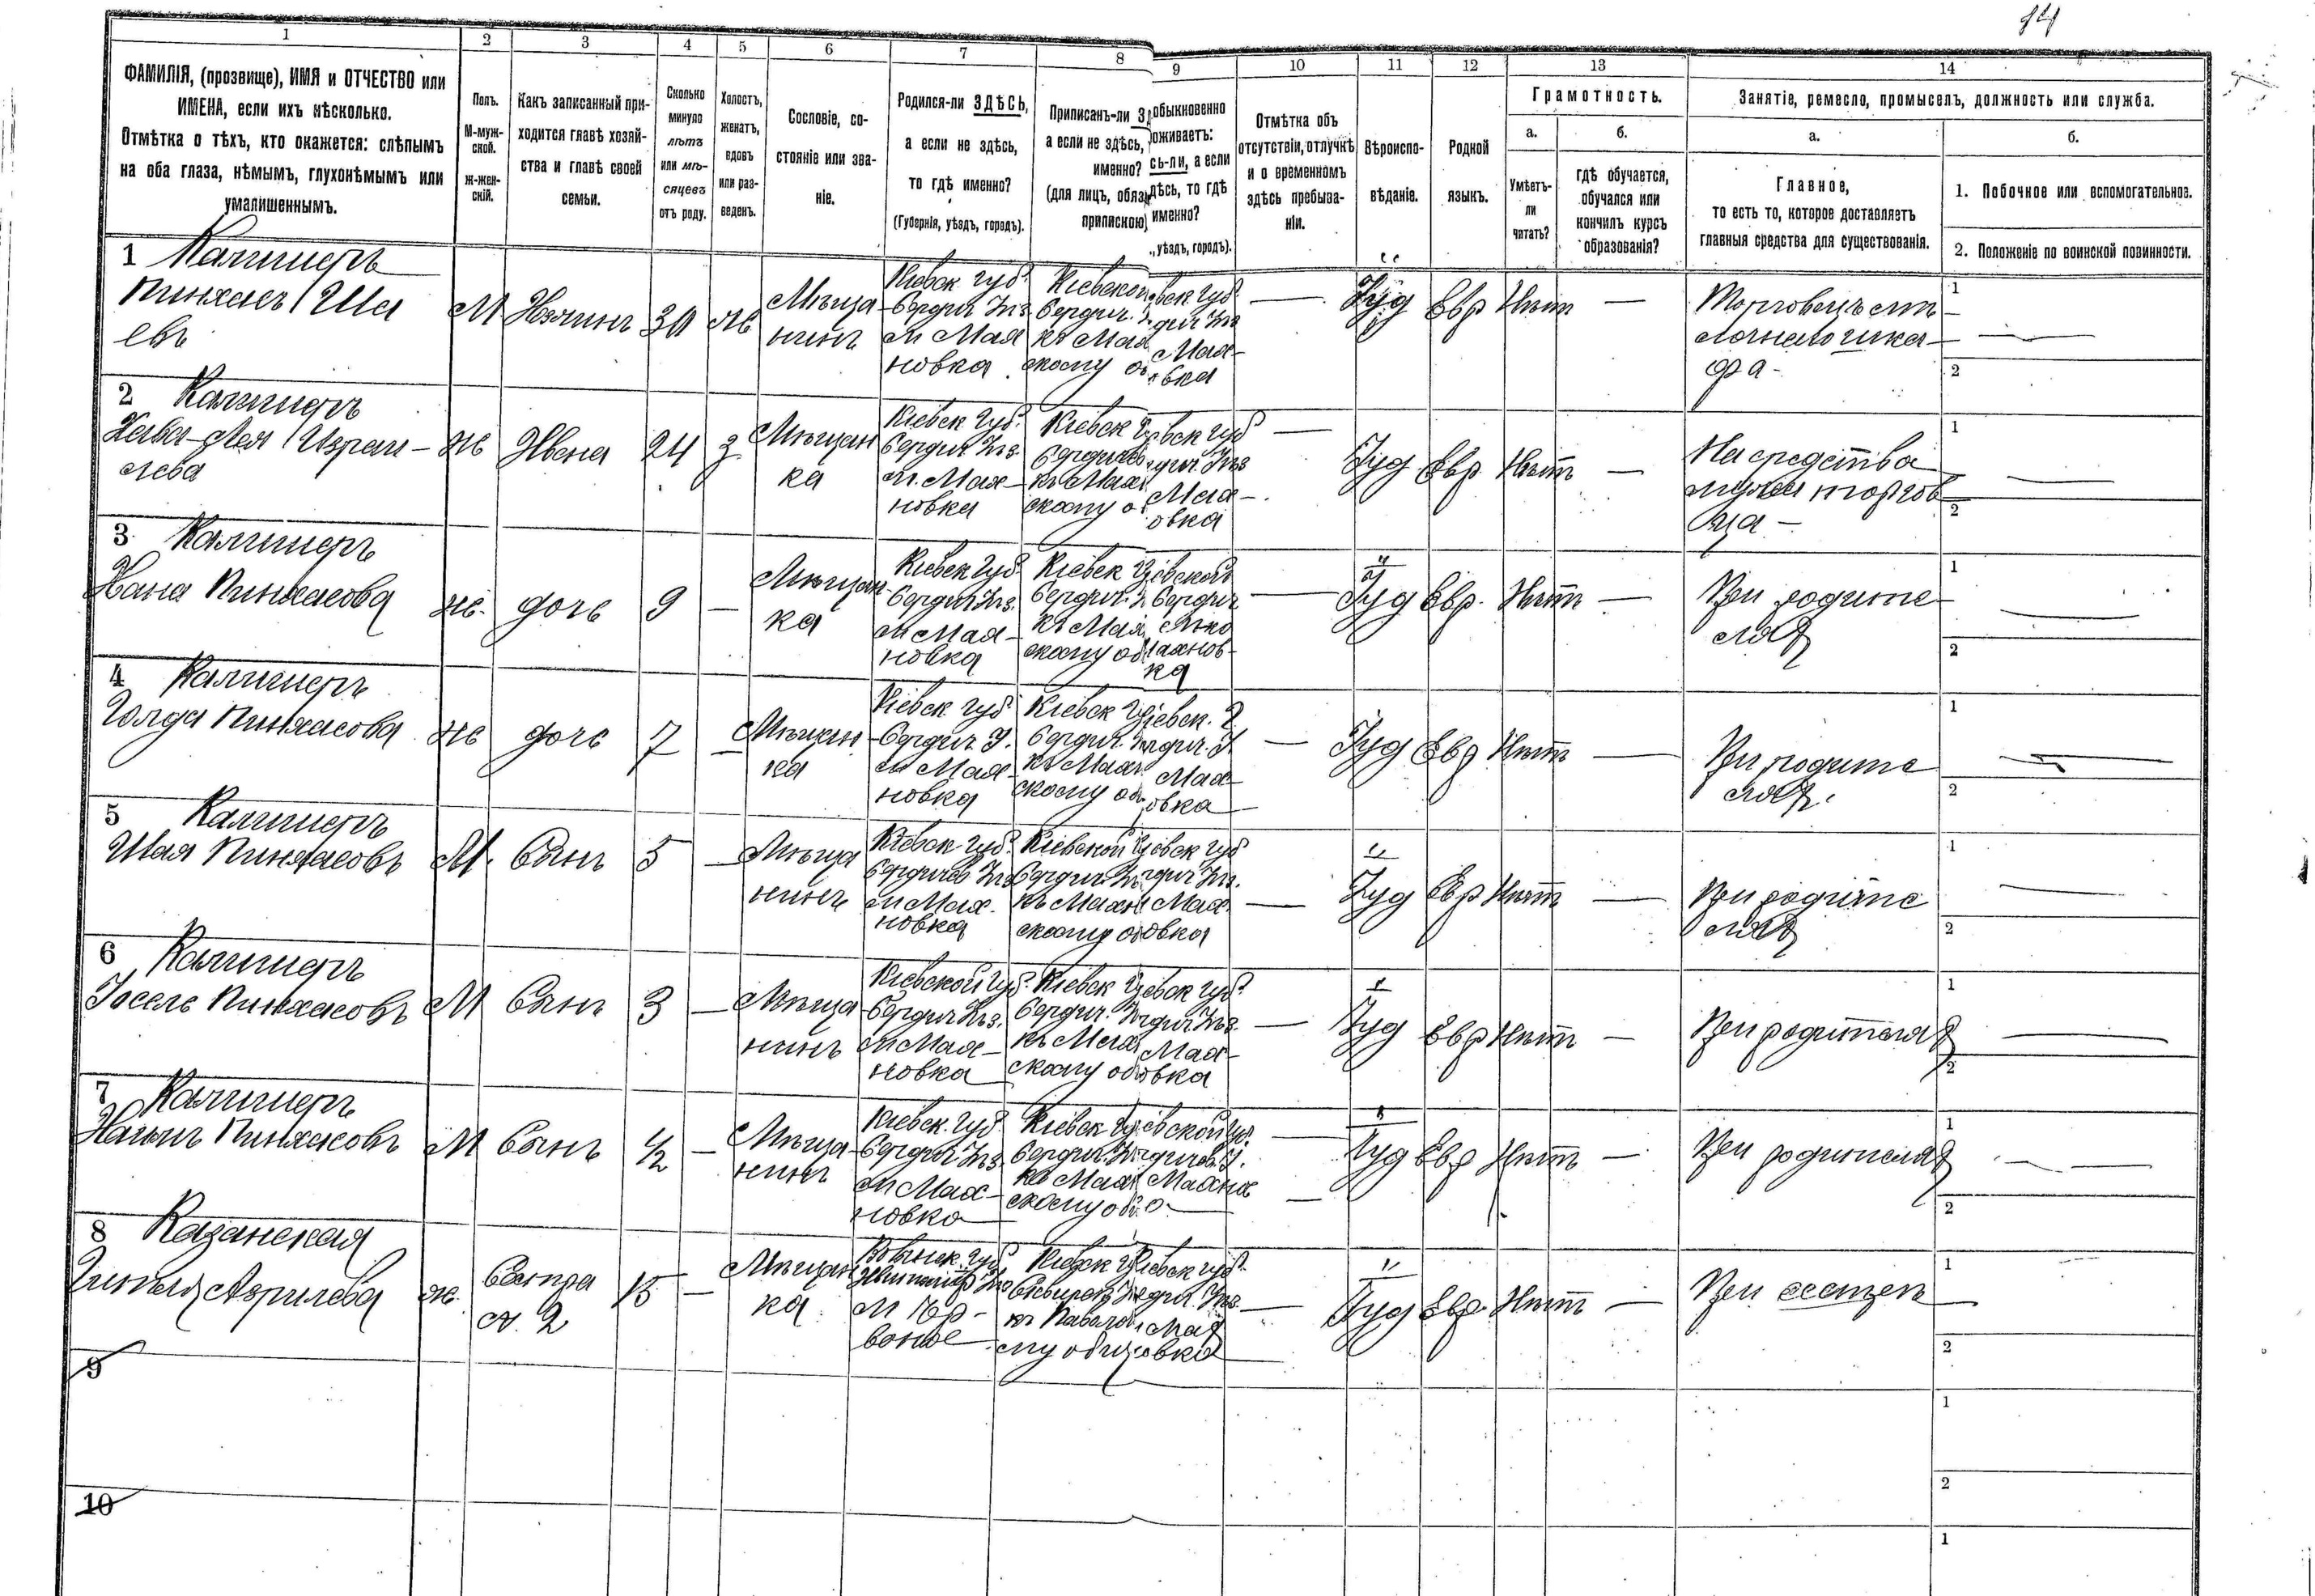 1
2
3
4
5
6
7
8
9
10
11
12
13
14
ФАМИЛІЯ, (прозвище), ИМЯ и ОТЧЕСТВО или
ИМЕНА, если ихъ нѣсколько.
Отмѣтка о тѣхъ, кто окажется: слѣпымъ
на оба глаза, нѣмымъ, глухонѣмымъ или
умалишеннымъ.
Полъ.
М-муж-
ской.
Ж-жен-
скій.
Какъ записанный при-
ходится главѣ хозяй-
ства и главѣ своей
семьи.
Сколько
минуло
лѣтъ
или мѣ-
сяцевъ
отъ роду.
Холостъ,
женатъ,
вдовъ
или раз-
веденъ.
Сословіе, со-
стояніе или зва-
ніе.
Родился-ли ЗДѢСЬ,
а если не здѣсь,
то гдѣ именно?
(Губернія, уѣздъ, городъ).
Приписанъ-ли З
а если не здѣсь,
именно?
(для лицъ, обяз
припискою)
обыкновенно
оживаетъ:
сь-ли, а если
дѣсь, то гдѣ
именно?
., уѣздъ, городъ).
Отмѣтка объ
отсутствіи, отлучкѣ
и о временномъ
здѣсь пребыва-
ніи.
Вѣроиспо-
вѣданіе.
Родной
языкъ.
Грамотность.
а.
б.
Умѣетъ-
ли
читать?
гдѣ обучается,
обучался или
кончилъ курсъ
образованія?
Занятіе, ремесло, промыселъ, должность или служба.
а.
б.
Главное,
то есть то, которое доставляетъ
главныя средства для существованія.
1. Побочное или вспомогательное.
2. Положеніе по воинской повинности.
1 Калишеръ
Пинхасъ Ша
евъ
М
Хозяинъ
30
ж
Мѣща
нинъ
Кіевск губ.
Бердич Уѣз
м Мах
новка
Кіевской
Бердич.
къ Мах
скому об
евск губ
дич Уѣз
Мах-
овка
Іуд
Евр
Нѣтъ
1
2
2 Калишеръ
Хава-Лея Израи-
лева
ж
Жена
24
з
Мѣщан
ка
Кіевск губ.
Бердич Уѣз
м. Мах-
новка
Кіевск
Бердичев
къ Мах
скому о
евск губ
дич. Уѣз
Мах-
овка
Іуд
Евр
Нѣтъ
На средства
мужа торгов
ца -
1
2
3. Калишеръ
Хана Пинхасова
ж.
дочь
9
Мѣщан
ка
Кіевск губ
Бердич Уѣз.
м Мах-
новка
Кіевск
Бердич.
къ Мах
скому об
іевской
Бердич
ахнов-
ка
Іуд
Евр.
Нѣтъ
При родите
лях
1
2
4 Калишеръ
Голда Пинхасова
ж
дочь
7
Мѣщан
ка
Кіевск губ
Бердич У.
м Мах-
новка
Кіевск
Бердич.
къ Мах
скому об
іевск. Г
дич. У
Мах
овка
Іуд
Евр
Нѣтъ
При родите
лях.
1
2
5 Калишеръ
Шая Пинхасовъ
М.
Сынъ
5
Мѣща
нинъ
Кіевск губ.
Бердичев Уѣз
м Мах.
новка
Кіевской
Бердич.
къ Махн
скому об
іевск губ
дич Уѣз.
Мах
овка
Іуд
Евр
Нѣтъ
При родите
лях
1
2
6 Калишеръ
Іосель Пинхасовъ
М
Сынъ
3
Мѣща
нинъ
Кіевской губ.
Бердич Уѣз.
м Мах-
новка
Кіевск
Бердич.
къ Мах
скому об
іевск губ.
дич Уѣз.
Мах-
овка
Іуд
Евр
Нѣтъ
При родителях
1
2
7 Калишеръ
Пинхасовъ
М
Сынъ
1/2
Мѣща
нинъ
Кіевск. губ
Бердич Уѣз
м Мах-
новка
Кіевск
Бердич.
къ Мах
скому об
Іуд
Евр
Нѣтъ
При родителях
1
2
8 Казанская
ж.
Сестра
л. 2
15
Мѣщан
ка
Кіевск
іевск губ.
Мах
овка
Іуд
Евр.
Нѣтъ
При сестрѣ
1
2
9
1
2
10
1